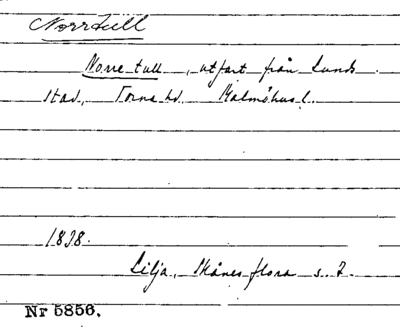 Norrtull
Norre tull, utfart från Lunds
stad, Torna hd. Malmöhus l.
1838.
Lilja, Skånes flora s. 7.
Nr 5856.